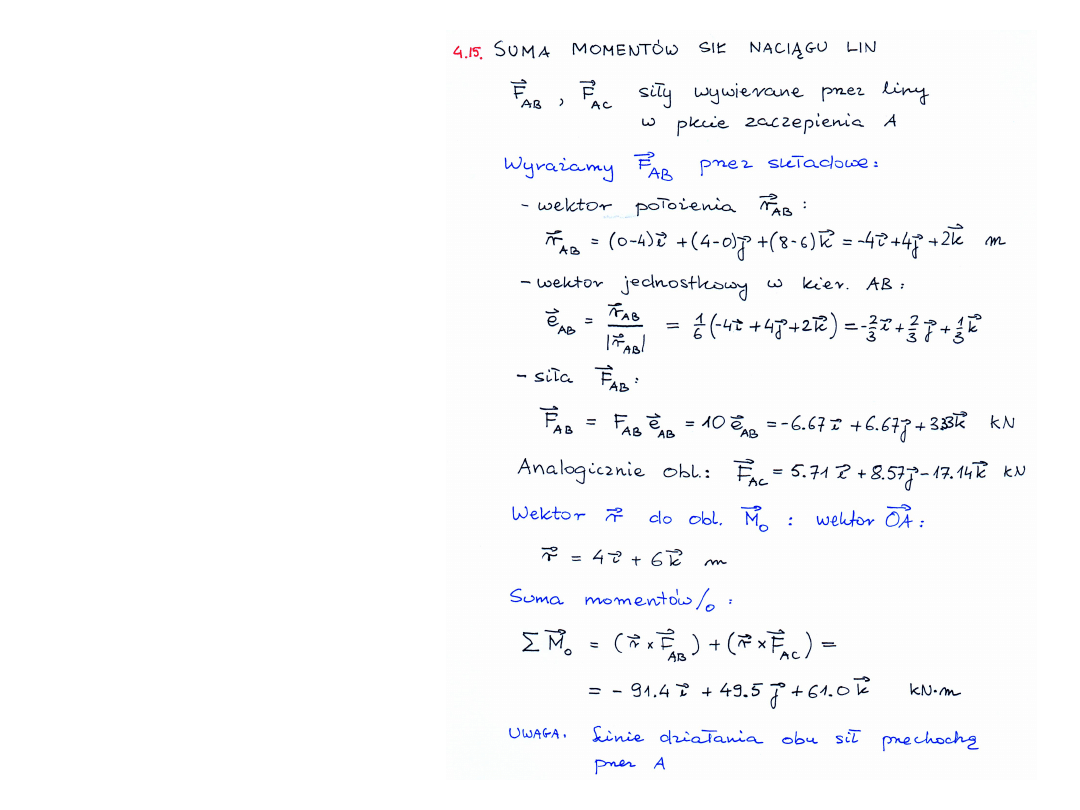 4.15. SUMA MOMENTÓW SIŁ NACIĄGU LIN
F⃗_AB , F⃗_AC siły wywierane przez liny
w pkcie zaczepienia A
Wyrażamy F⃗_AB przez składowe:
- wektor położenia r⃗_AB :
r⃗_AB = (0-4)i⃗ +(4-0)j⃗ +(8-6)k⃗ = -4i⃗+4j⃗+2k⃗ m
- wektor jednostkowy w kier. AB :
e⃗_AB = r⃗_AB / |r⃗_AB| = 1/6 (-4i⃗ +4j⃗+2k⃗) = -2/3 i⃗ + 2/3 j⃗ + 1/3 k⃗
- siła F⃗_AB :
F⃗_AB = F_AB e⃗_AB = 10 e⃗_AB = -6.67 i⃗ +6.67j⃗ +3.33k⃗ kN
Analogicznie obl.: F⃗_AC = 5.71 i⃗ +8.57j⃗ -17.14k⃗ kN
Wektor r⃗ do obl. M⃗_o : wektor OA⃗ :
r⃗ = 4i⃗ + 6k⃗ m
Suma momentów/o :
Σ M⃗_o = (r⃗ × F⃗_AB) + (r⃗ × F⃗_AC) =
= - 91.4 i⃗ + 49.5 j⃗ + 61.0 k⃗ kN·m
UWAGA. Linie działania obu sił przechodzą
przez A